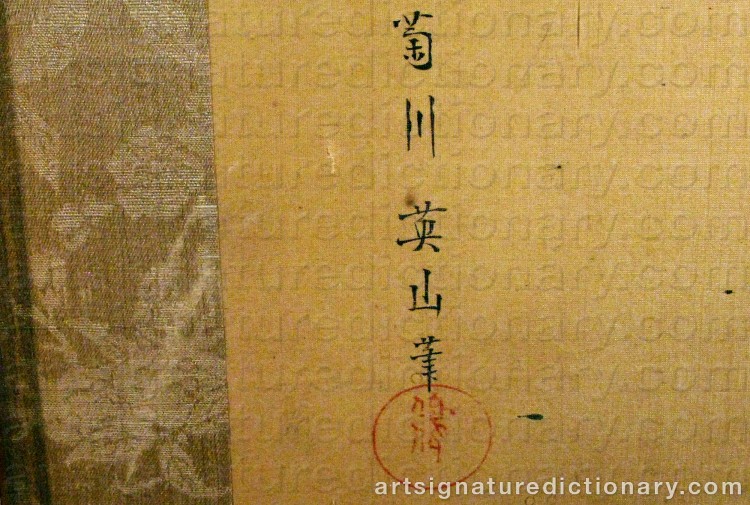 菊川英山筆
artsignaturedictionary.com